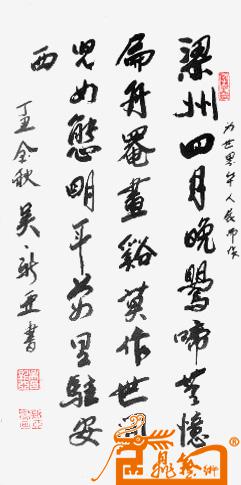 为世界华人展而作
梁州四月晚鶯啼共憶
扁舟罨畫谿莫作世間
兒女態明年萬里駐安
西
丁丑金秋吴新亚書